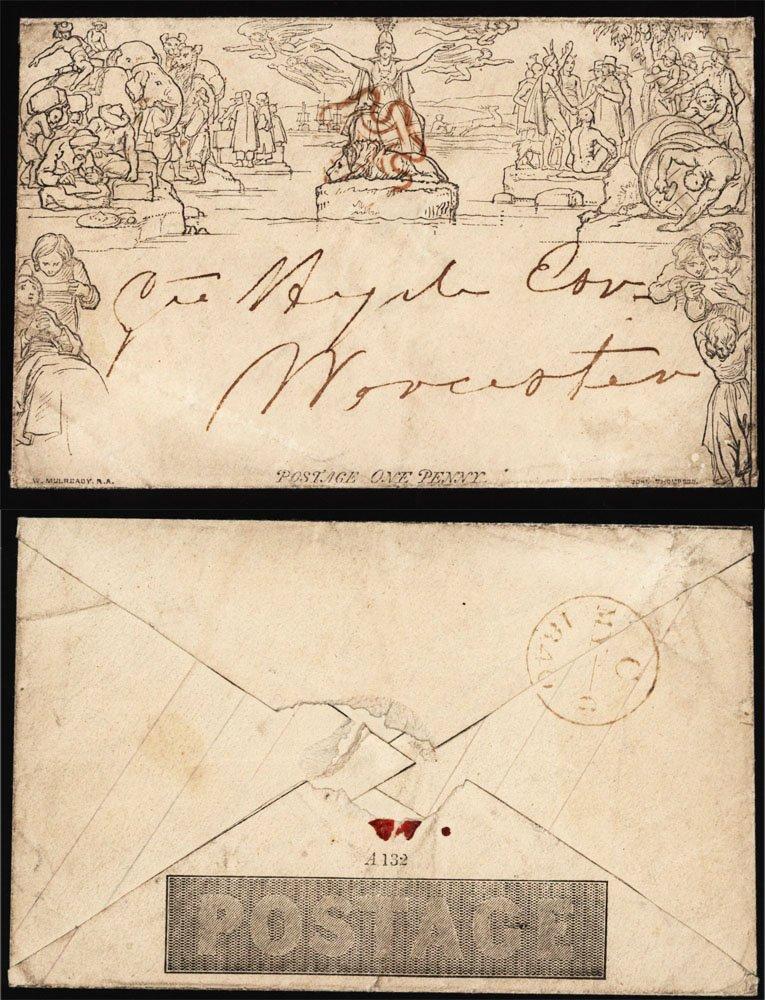 Hyde Esqr
Worcester
W. MULREADY. R.A.
POSTAGE ONE PENNY.
JOHN THOMPSON.
1840
A 132
POSTAGE